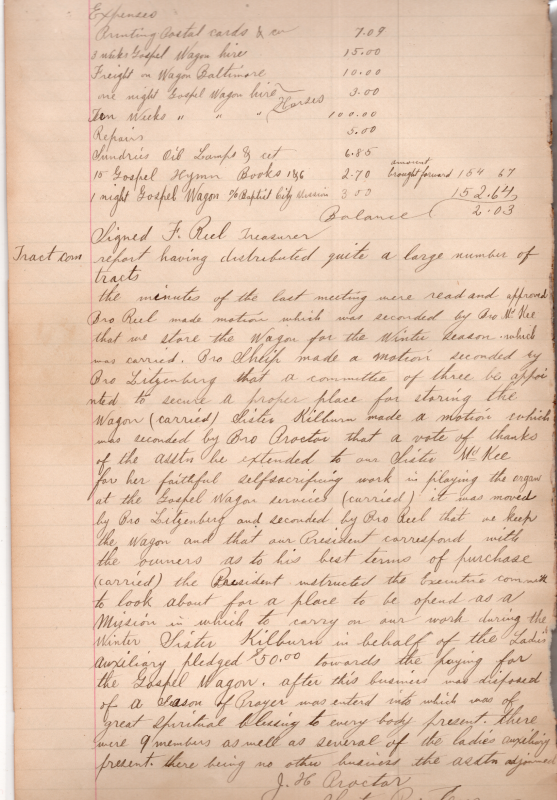 Expenses
Printing Postal cards & co 7.09
3 weeks Gospel Wagon hire 15.00
Freight on Wagon Baltimore 10.00
one night Gospel Wagon hire 3.00
Horses
Ten Weeks " " " 100.00
Repairs 5.00
Sundries Oil Lamps & cet 6.85
15 Gospel Hymn Books 1&6 2.70 amount brought forward 154 67
1 night Gospel Wagon Baptist City Mission 3 00 152.64
Balance 2.03
Signed F. Reel Treasurer
Tract com report having distributed quite a large number of
tracts
the minutes of the last meeting were read and approved
Bro Reel made motion which was seconded by Bro McKee
that we store the Wagon for the Winter season. which
was carried. Bro Sheip made a motion seconded by
Bro Litzenberg that a committee of three be appoi
nted to secure a proper place for storing the
Wagon (carried) Sister Kilburn made a motion which
was seconded by Bro Proctor that a vote of thanks
of the asstn be extended to our Sister McKee
for her faithful selfsacrificing work in playing the organ
at the Gospel Wagon services (carried) it was moved
by Bro Litzenberg and seconded by Bro Reel that we keep
the Wagon and that our President correspond with
the owners as to his best terms of purchase
(carried) the President instructed the Executive committe
to look about for a place to be opend as a
Mission in which to carry on our work during the
Winter Sister Kilburn in behalf of the Ladies
auxiliary pledged $50.00 towards the paying for
the Gospel Wagon. after this business was disposed
of a season of Prayer was enterd into which was of
great spiritual blessing to every body present. there
were 9 members as well as several of the ladies auxiliary
present. there being no other business the asstn adjourned
J. H. Proctor